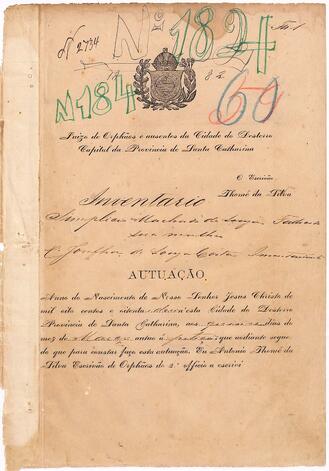 Nº 2734
Nº 182
Fls. 1
N 184
60
18 82
Juizo de Orphãos e ausentes da Cidade do Desterro
Capital da Provincia de Santa Catharina
O Escrivão
Thomé da Silva
Inventario
Machado de Souza
sua mulher
de Souza Costa Inventariante
AUTUAÇÃO
Anno do Nascimento de Nosso Senhor Jesus Christo de
mil oito centos e oitenta nesta Cidade do Desterro
Provincia de Santa Catharina, aos dias do
mez de Março autuo a petição que adiante segue
de que para constar faço esta autuação. Eu Antonio Thomé da
Silva Escrivão de Orphãos do 2º officio a escrivi